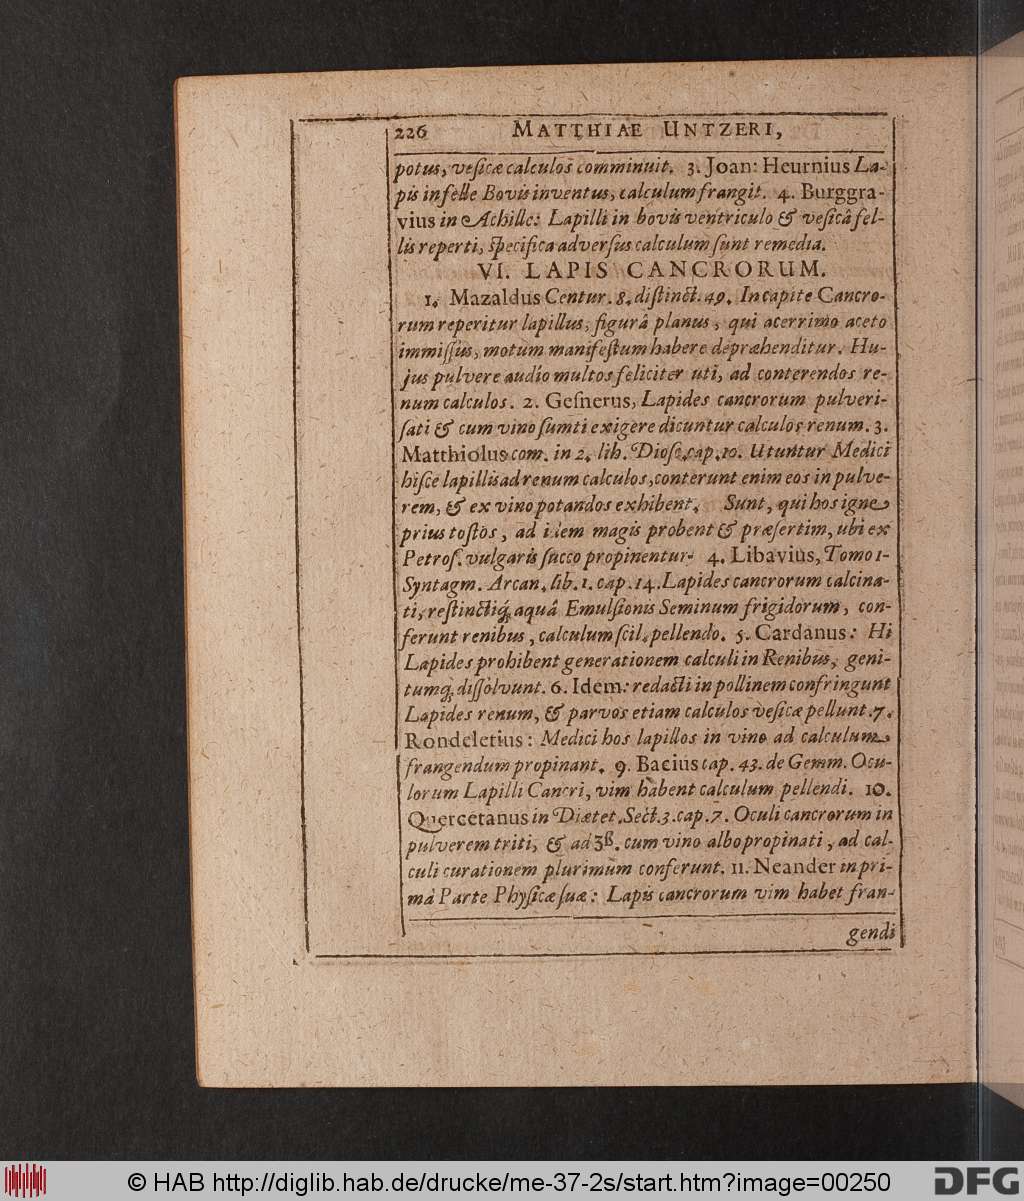 226 MATTHIAE UNTZERI,
potus, veſicæ calculos comminuit. 3. Joan: Heurnius La-
pis in felle Bovis inventus, calculum frangit. 4. Burggra-
vius in Achille: Lapilli in bovis ventriculo & veſicâ fel-
lis reperti, ſpecifica adverſus calculum ſunt remedia.
VI. LAPIS CANCRORUM.
1. Mazaldus Centur. 8. diſtinct. 49. In capite Cancro-
rum reperitur lapillus, figurâ planus, qui acerrimo aceto
immiſſus, motum manifeſtum habere depræhenditur. Hu-
jus pulvere audio multos feliciter uti, ad conterendos re-
num calculos. 2. Geſnerus, Lapides cancrorum pulveri-
ſati & cum vino ſumti exigere dicuntur calculos renum. 3.
Matthiolus com. in 2. lib. Dioſc. cap. 10. Utuntur Medici
hiſce lapillis ad renum calculos, conterunt enim eos in pulve-
rem, & ex vino potandos exhibent. Sunt, qui hos igne
prius toſtos, ad idem magis probent & præſertim, ubi ex
Petroſ. vulgaris ſucco propinentur. 4. Libavius, Tomo 1.
Syntagm. Arcan. lib. 1. cap. 14. Lapides cancrorum calcina-
ti, reſtinctiq́; aquâ Emulſionis Seminum frigidorum, con-
ferunt renibus, calculum ſcil. pellendo. 5. Cardanus: Hi
Lapides prohibent generationem calculi in Renibus, geni-
tumq́; diſſolvunt. 6. Idem: redacti in pollinem confringunt
Lapides renum, & parvos etiam calculos veſicæ pellunt. 7.
Rondeletius: Medici hos lapillos in vino ad calculum
frangendum propinant. 9. Bacius cap. 43. de Gemm. Ocu-
lorum Lapilli Cancri, vim habent calculum pellendi. 10.
Quercetanus in Diætet. Sect. 3. cap. 7. Oculi cancrorum in
pulverem triti, & ad ʒß. cum vino albo propinati, ad cal-
culi curationem plurimùm conferunt. 11. Neander in pri-
mâ Parte Phyſicæ ſuæ: Lapis cancrorum vim habet fran-
gendi
© HAB http://diglib.hab.de/drucke/me-37-2s/start.htm?image=00250
DFG